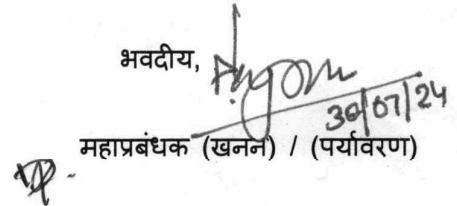 भवदीय,
30/07/24
महाप्रबंधक (खनन) / (पर्यावरण)